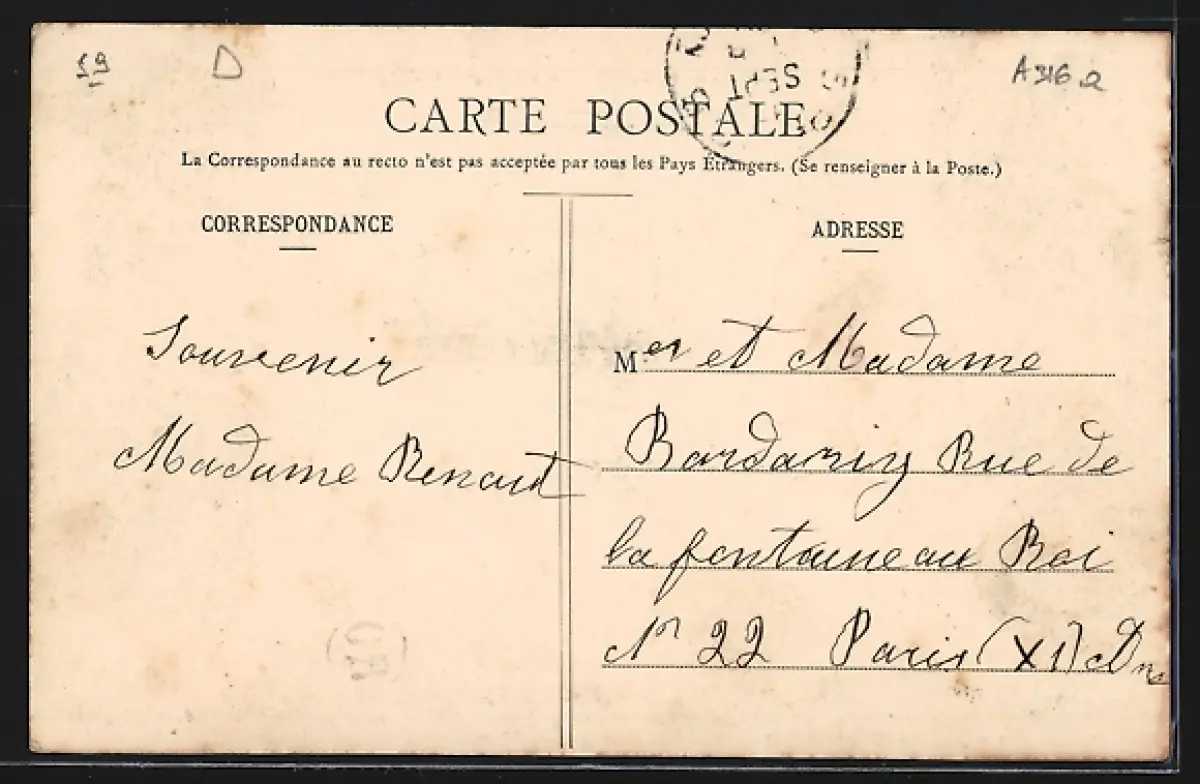 59
D
A316a
SEPT
CARTE POSTALE
La Correspondance au recto n'est pas acceptée par tous les Pays Étrangers. (Se renseigner à la Poste.)
CORRESPONDANCE
Souvenir
Madame Renaut
ADRESSE
Mer et Madame
Rue de
la fontaine au Roi
No 22 Paris (XI)